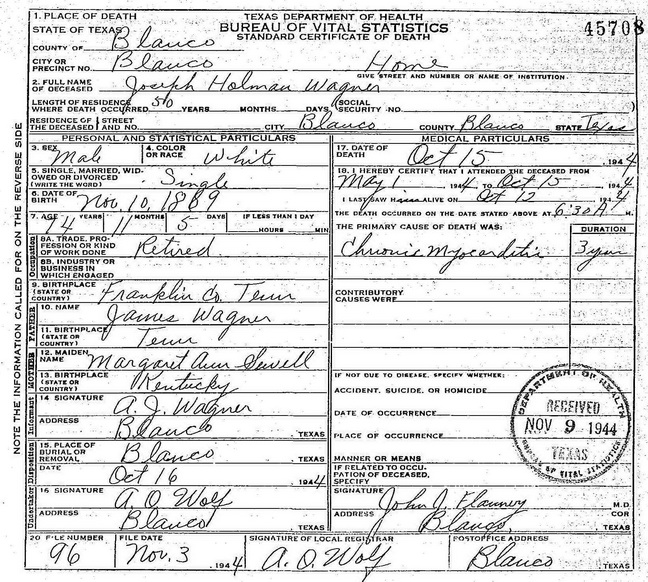 TEXAS DEPARTMENT OF HEALTH
BUREAU OF VITAL STATISTICS
STANDARD CERTIFICATE OF DEATH
45708
NOTE THE INFORMATION CALLED FOR ON THE REVERSE SIDE
1. PLACE OF DEATH
STATE OF TEXAS
COUNTY OF Blanco
CITY OR PRECINCT NO. Blanco Home
GIVE STREET AND NUMBER OR NAME OF INSTITUTION
2. FULL NAME OF DECEASED Joseph Holman Wagner
LENGTH OF RESIDENCE WHERE DEATH OCCURRED 50 YEARS MONTHS DAYS (SOCIAL SECURITY NO. )
RESIDENCE OF THE DECEASED STREET AND NO. CITY Blanco COUNTY Blanco STATE Texas
PERSONAL AND STATISTICAL PARTICULARS
3. SEX Male 4. COLOR OR RACE White
5. SINGLE, MARRIED, WIDOWED OR DIVORCED (WRITE THE WORD) Single
6. DATE OF BIRTH Nov. 10, 1869
7. AGE 74 YEARS 11 MONTHS 5 DAYS IF LESS THAN 1 DAY HOURS MIN
Occupation
8A. TRADE, PROFESSION OR KIND OF WORK DONE Retired
8B. INDUSTRY OR BUSINESS IN WHICH ENGAGED
9. BIRTHPLACE (STATE OR COUNTRY) Franklin Co. Tenn
FATHER
10. NAME James Wagner
11. BIRTHPLACE (STATE OR COUNTRY) Tenn
MOTHER
12. MAIDEN NAME Margaret Ann Sewell
13. BIRTHPLACE (STATE OR COUNTRY) Kentucky
Informant
14 SIGNATURE A. J. Wagner
ADDRESS Blanco, TEXAS
Disposition
15. PLACE OF BURIAL OR REMOVAL Blanco, TEXAS
DATE Oct 16 1944
Undertaker
16 SIGNATURE A O Wolf
ADDRESS Blanco, TEXAS
MEDICAL PARTICULARS
17. DATE OF DEATH Oct 15, 1944
18. I HEREBY CERTIFY THAT I ATTENDED THE DECEASED FROM
May 1 1944 TO Oct 15, 1944
I LAST SAW ALIVE ON Oct 12 1944
THE DEATH OCCURRED ON THE DATE STATED ABOVE AT 6:30 A M.
THE PRIMARY CAUSE OF DEATH WAS: DURATION
Chronic Myocarditis 3 yrs
CONTRIBUTORY CAUSES WERE
IF NOT DUE TO DISEASE, SPECIFY WHETHER:
ACCIDENT, SUICIDE, OR HOMICIDE
DATE OF OCCURRENCE
PLACE OF OCCURRENCE
MANNER OR MEANS
IF RELATED TO OCCUPATION OF DECEASED, SPECIFY
SIGNATURE John J. M.D.
ADDRESS Blanco, COR TEXAS
DEPARTMENT OF HEALTH
RECEIVED
NOV 9 1944
TEXAS
BUREAU OF VITAL STATISTICS
20 FILE NUMBER 96
FILE DATE Nov. 3 1944
SIGNATURE OF LOCAL REGISTRAR A. O. Wolf
POSTOFFICE ADDRESS Blanco TEXAS